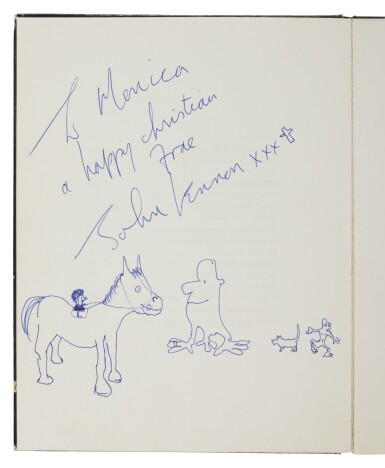 To Monica
a happy christian
from
John Lennon xxx